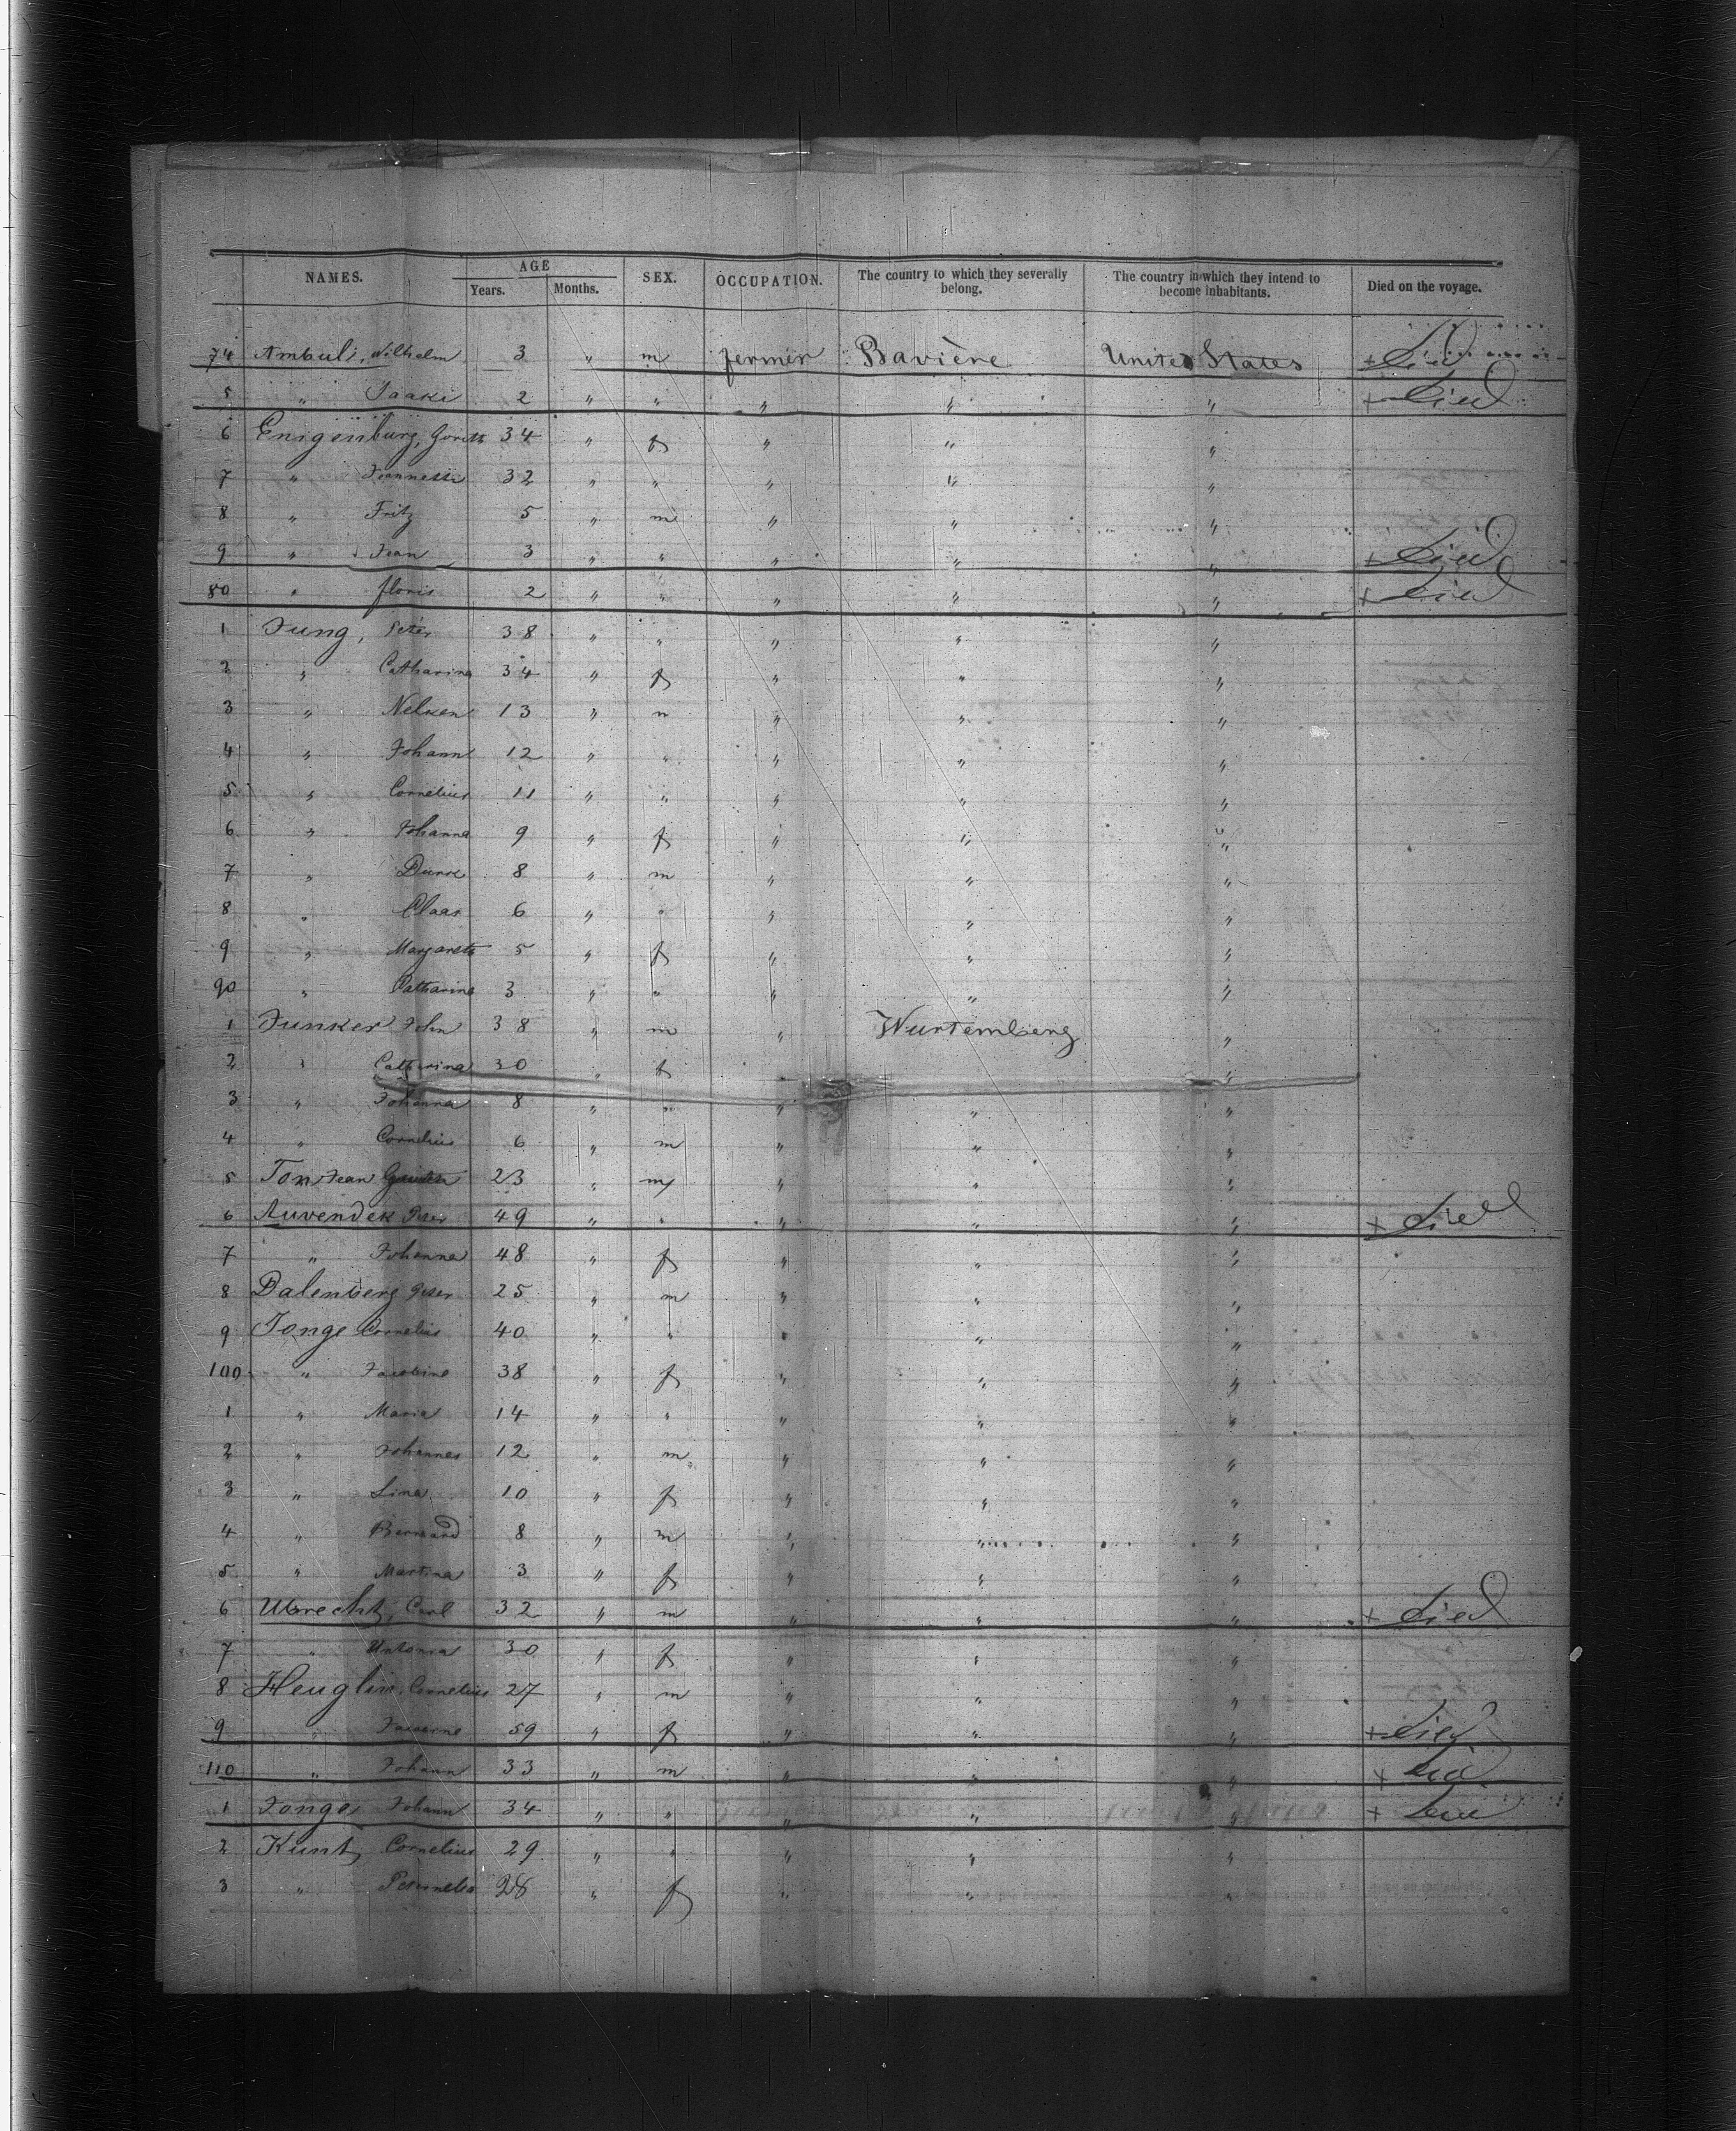 NAMES. AGE SEX. OCCUPATION. The country to which they severally belong. The country in which they intend to become inhabitants. Died on the voyage.
Years. Months.
74 Ambuli, Wilhelm 3 " m fermer Bavière United States + Died
5 " Isaaki 2 " " " " " + Died
6 Enigenburg, Goritt 34 " f " " "
7 " Jeannette 32 " " " " "
8 " Fritz 5 " m " " "
9 " Jean 3 " " " " " + Died
80 " floris 2 " " " " " + Died
1 Jung, Peter 38 " " " " "
2 " Catharina 34 " f " " "
3 " Nelken 13 " m " " "
4 " Johann 12 " " " " "
5 " Cornelius 11 " " " " "
6 " Johanna 9 " f " " "
7 " 8 " m " " "
8 " Claas 6 " " " " "
9 " Margareta 5 " f " " "
90 " Catharina 3 " " " " "
1 Junker John 38 " m " Wurtemberg "
2 " Catharina 30 " f " "
3 " Johanna 8 " " " " "
4 " Cornelius 6 " m " " "
5 Ton Jean 23 " m " " "
6 Auvendek Peter 49 " " " " " + died
7 " Johanna 48 " f " " "
8 Dalenberg Peter 25 " m " " "
9 Jonge Cornelius 40 " " " " "
100 " Jacobine 38 " f " " "
1 " Maria 14 " " " " "
2 " Johannes 12 " m " " "
3 " Lina 10 " f " " "
4 " Bernard 8 " m " " "
5 " Martina 3 " f " " "
6 Ubrecht, Carl 32 " m " " " + died
7 " Antonia 30 " f " " "
8 Heuglin, Cornelius 27 " m " " "
9 " 59 " f " " " + died
110 " Johann 33 " m " " " +
1 Jonge, Johann 34 " " " " " +
2 Kunt, Cornelius 29 " " " " "
3 " Petronelia 28 " f " " "